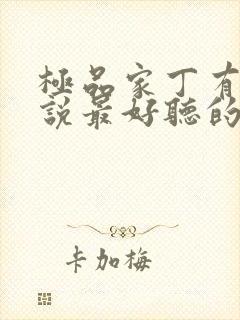 極品家丁有
說最好聽的
卡加梅